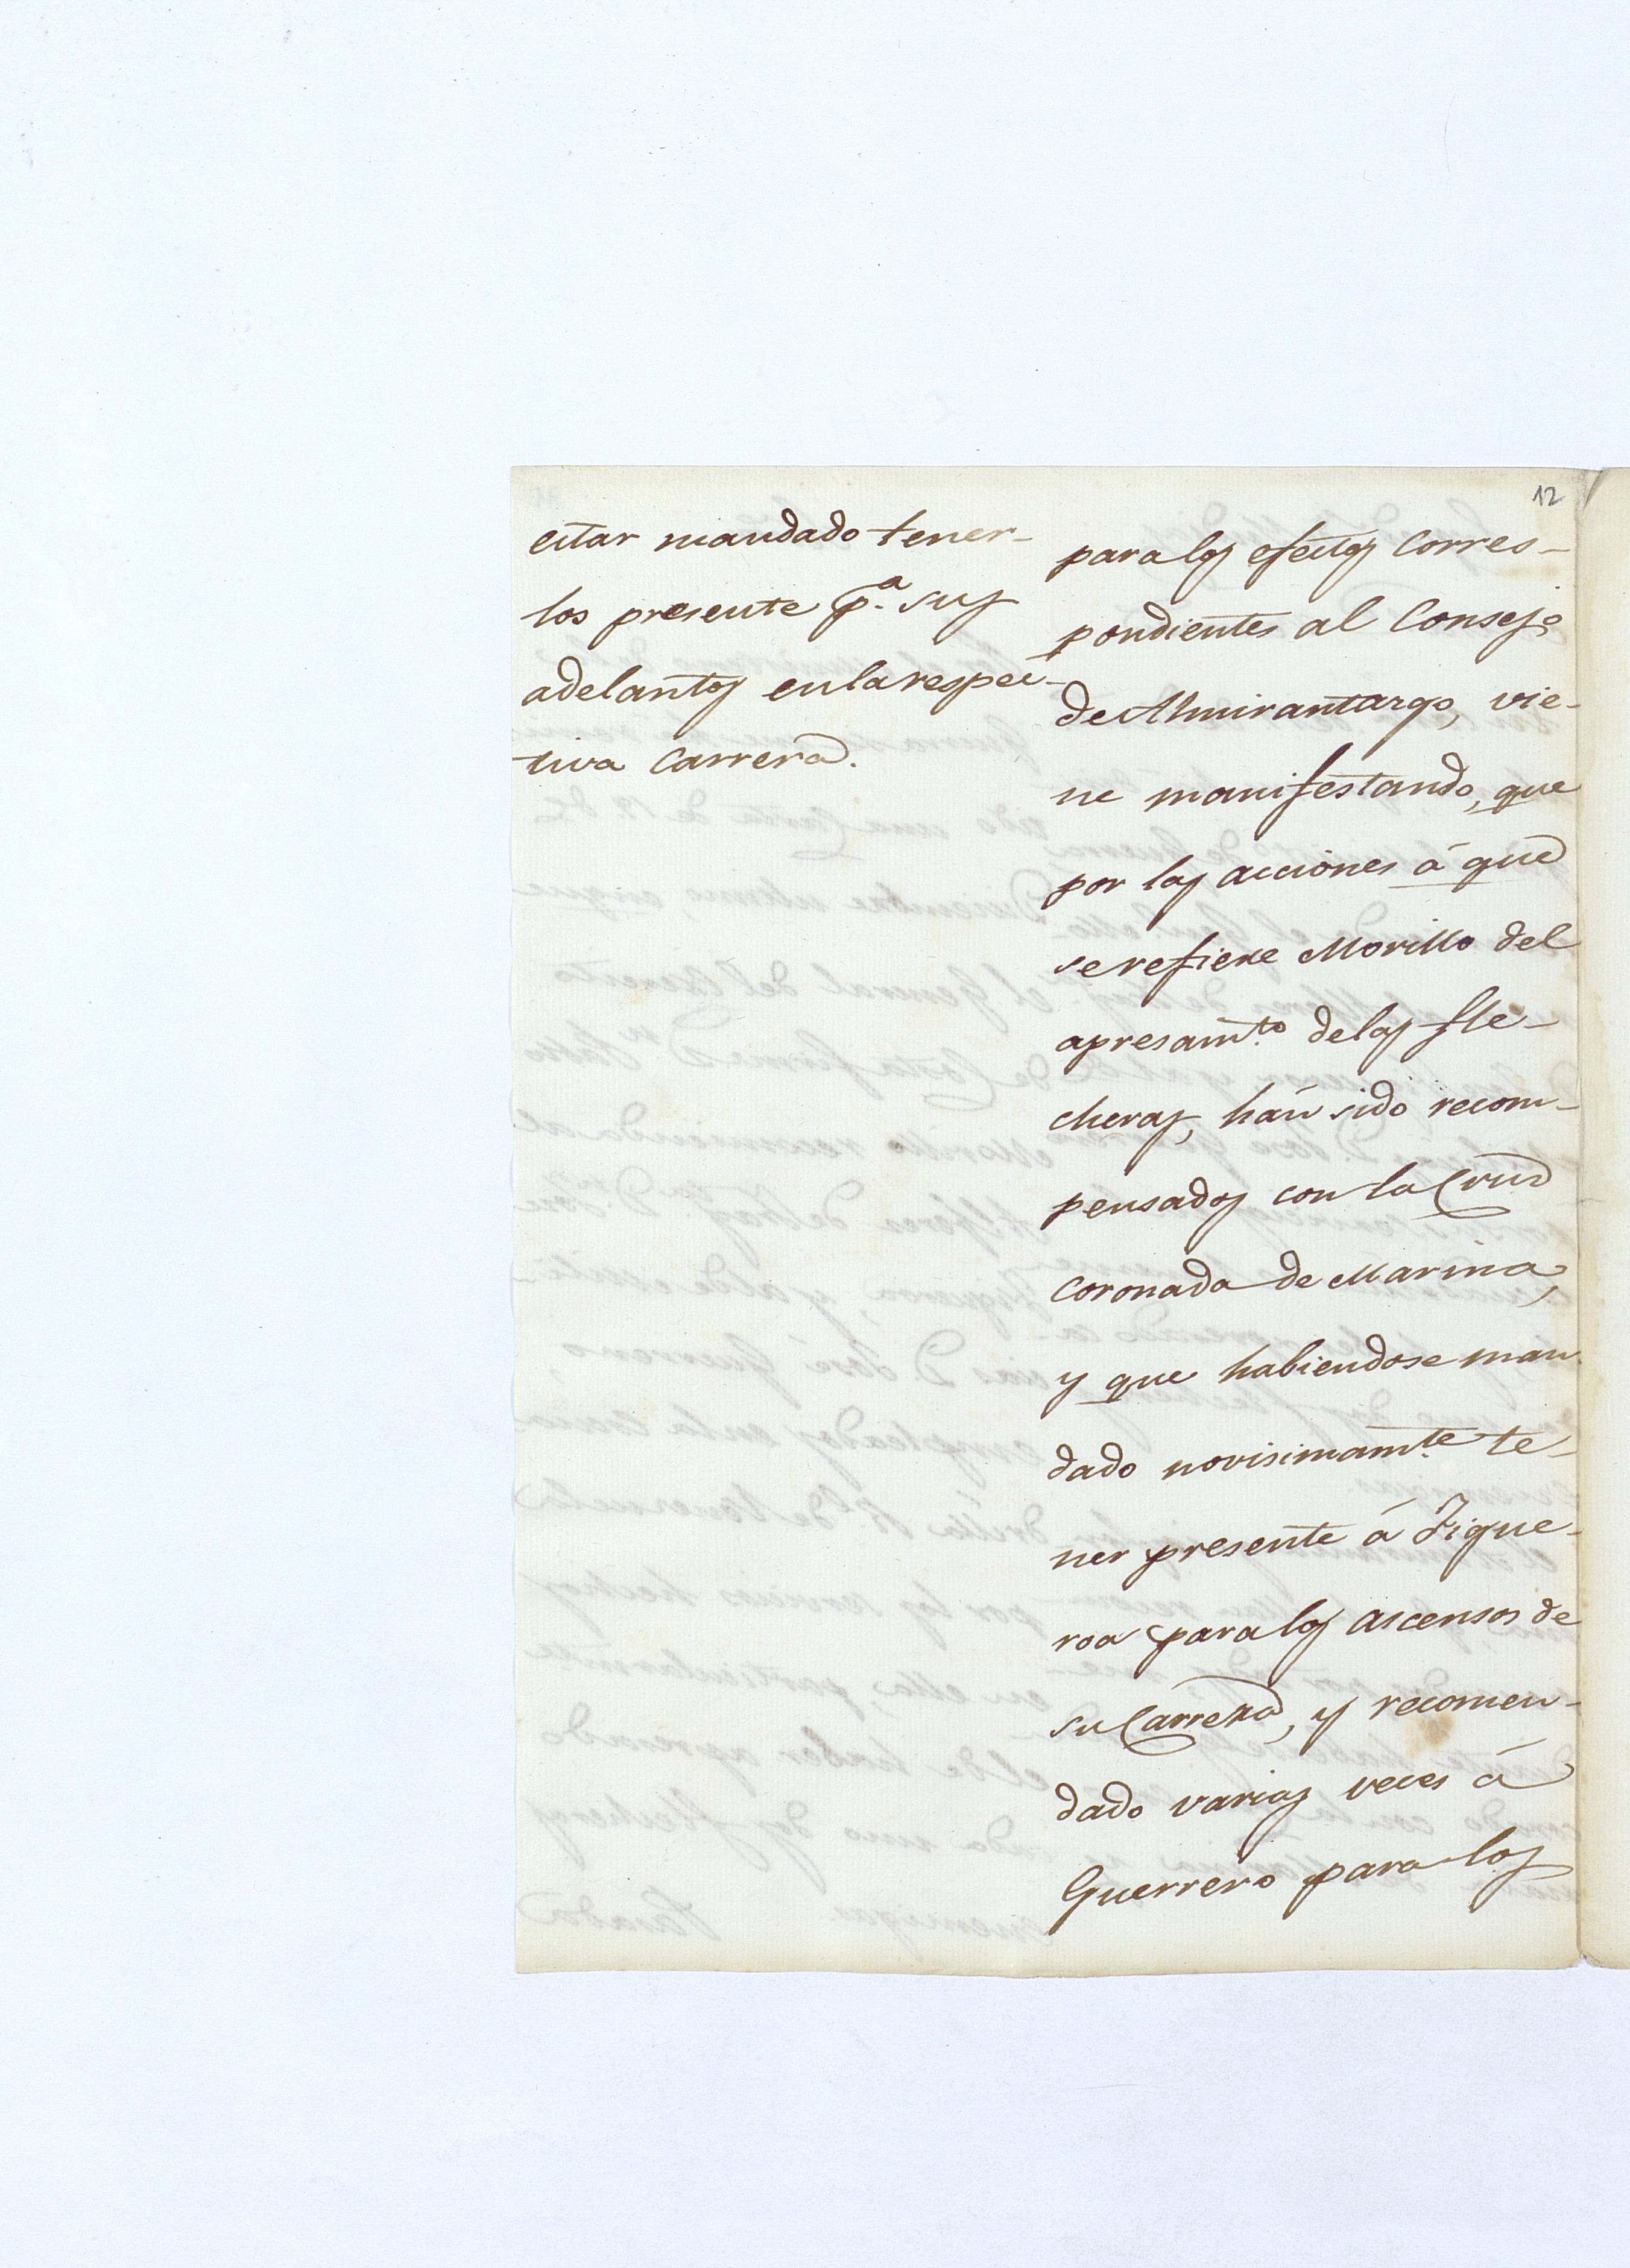 12
estar mandado tener-
los presente p.ª sus
adelantos en la respec-
tiva Carrera.
para los efectos Corres-
pondientes al Consejo
de Almirantazgo, vie-
ne manifestando, que
por las acciones á que
se refiere Morillo del
apresam.to de las fle-
cheras, hán sido recom-
pensados con la Cruz
Coronada de Marina,
y que habiendose man-
dado novisimam.te te-
ner presente á Figue-
roa para los ascensos de
su Carrera, y recomen-
dado varias veces á
Guerrero para los